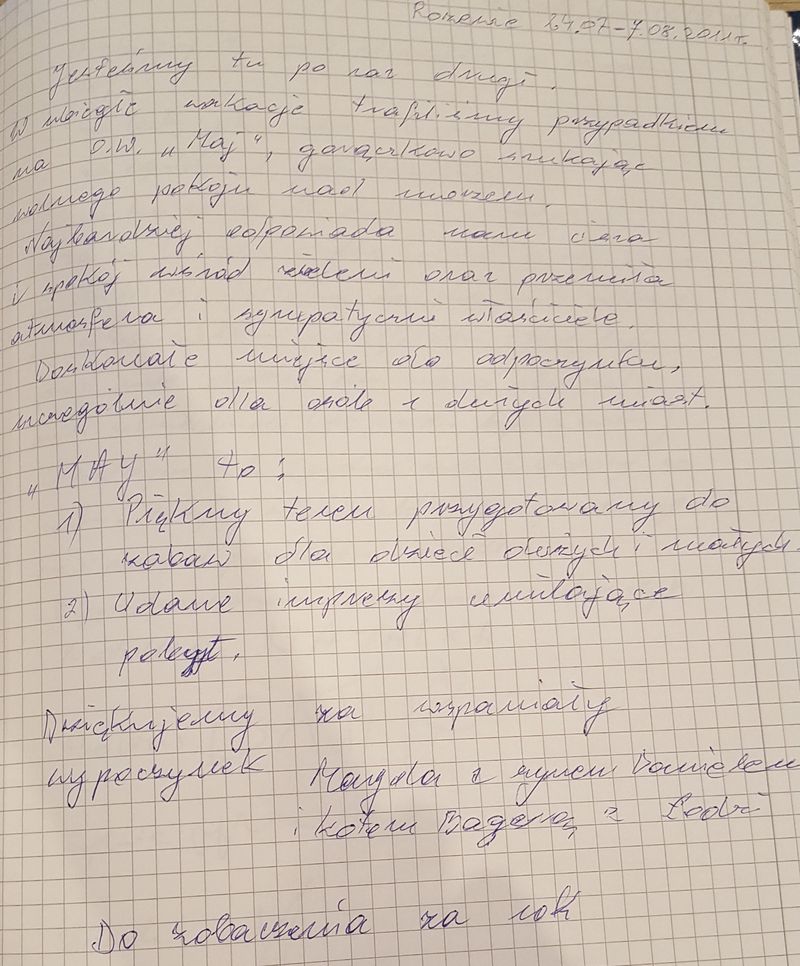 24.07-7.08.2011r.
Jesteśmy tu po raz drugi.
W ubiegłe wakacje trafiliśmy przypadkiem
na O.W. „Maj", gorączkowo szukając
wolnego pokoju nad morzem.
Najbardziej odpowiada nam cisza
i spokój wśród zieleni oraz przemiła
atmosfera i sympatyczni właściciele.
Doskonałe miejsce do odpoczynku,
szczególnie dla osób z dużych miast.
„MAY" to:
1) Piękny teren przygotowany do
zabaw dla dzieci dużych i małych.
2) Udane imprezy umilające
pobyt.
Dziękujemy za wspaniały
wypoczynek Magda z synem Danielem
i kotem z Łodzi
Do zobaczenia za rok